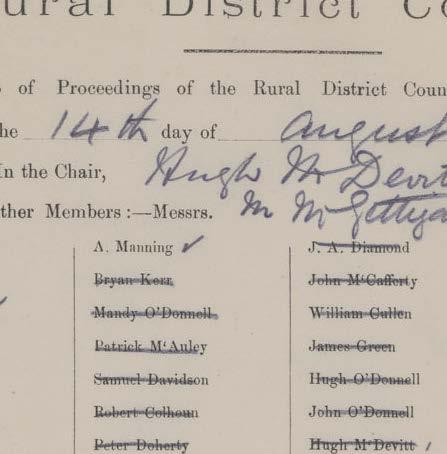 ural District Co
s of Proceedings of the Rural District Coun
the 14th day of August
In the Chair, Hugh McDevit
ther Members :—Messrs. M McGettiga
A. Manning ✓
Bryan Kerr
Mandy O'Donnell
Patrick McAuley
Samuel Davidson
Robert Colhoun
Peter Doherty
J. A. Diamond
John McCafferty
William Cullen
James Green
Hugh O'Donnell
John O'Donnell
Hugh McDevitt